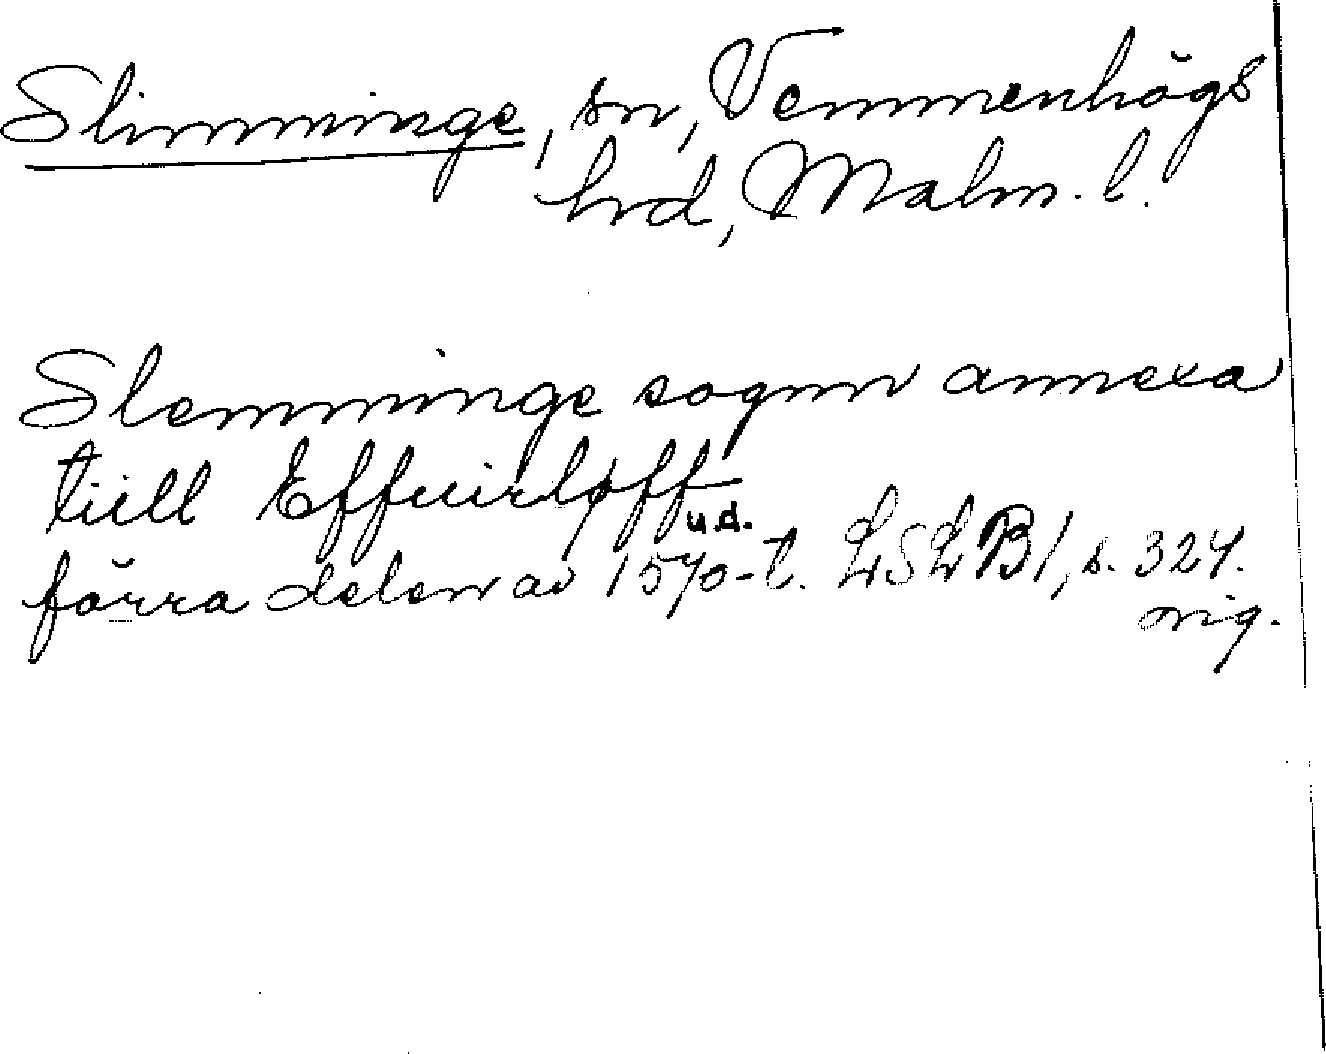 Slimminge, sn, Vemmenhögs
hrd, Malm. l.
Slemminge sognn annexa
tiill Effuirløff
u.d.
förra delen av 1570-t. LSLB1, s. 324.
orig.